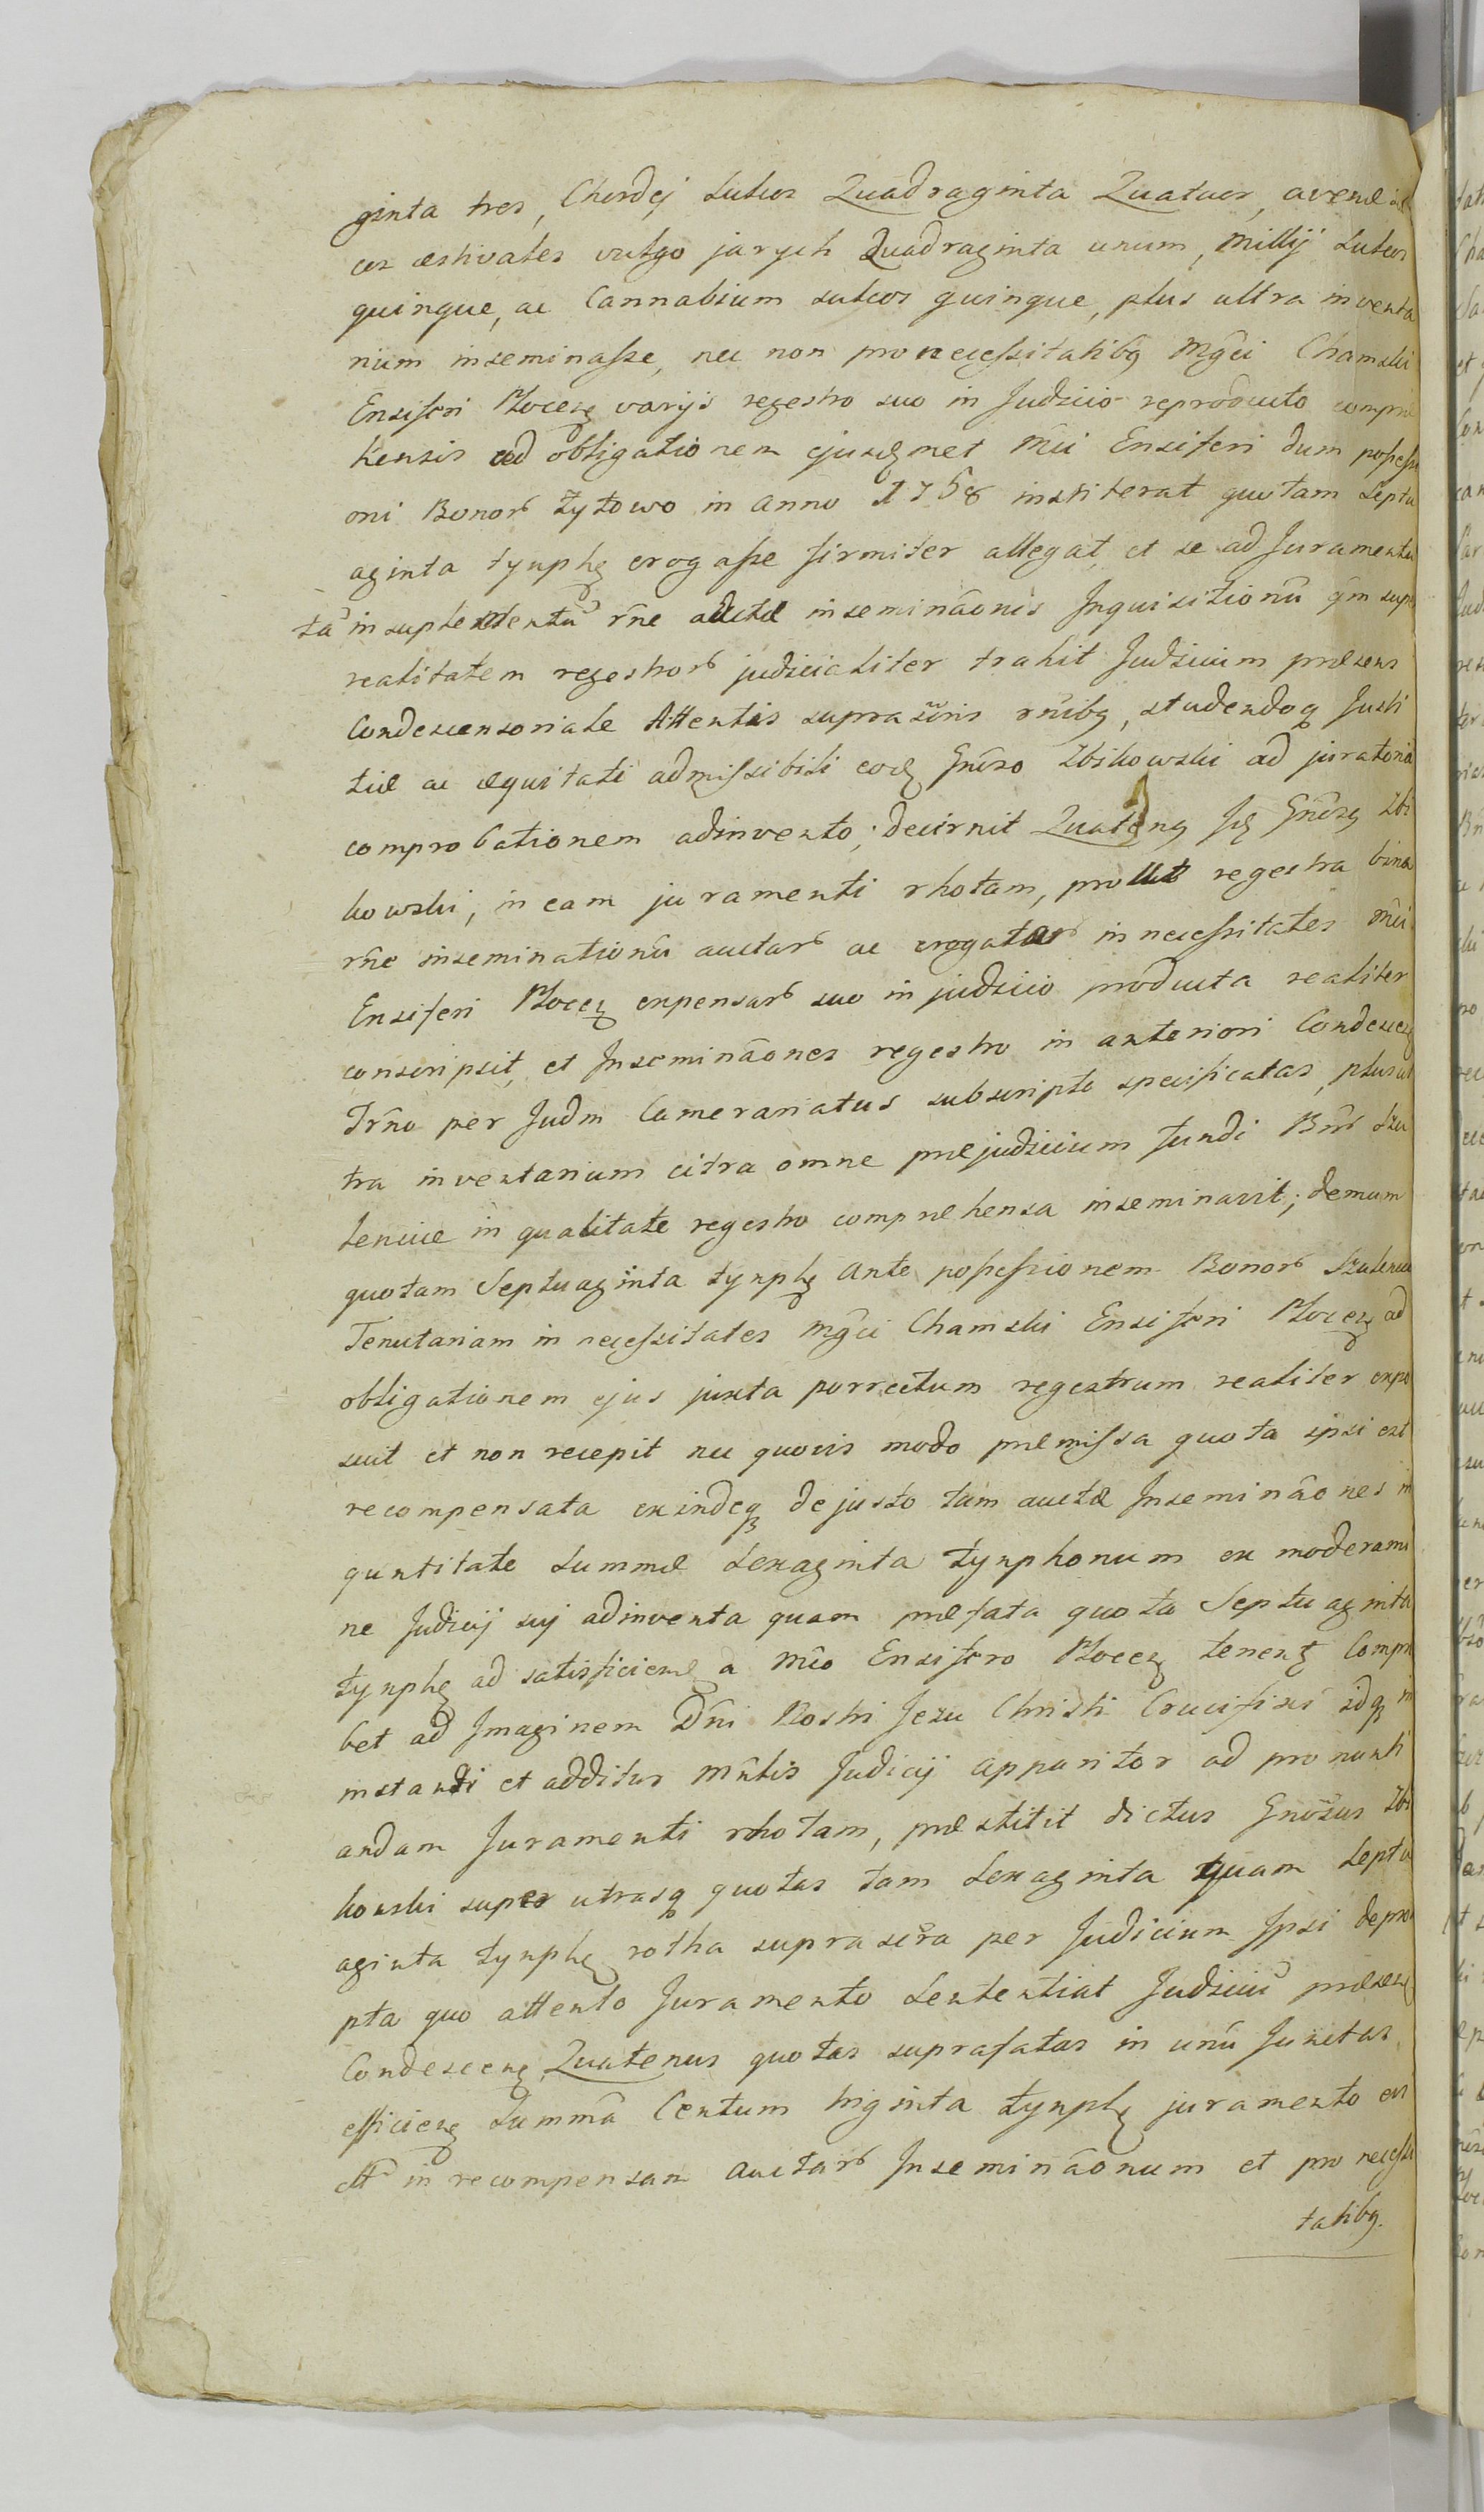 ginta tres, Chordej sulcos Quadraginta Quatuor, avenæ sul
cos æstivales vulgo jarych Quadraginta unum, Millij sulcos
quinque, ac Cannabium sulcos quinque, plus ultra inventa
rium inseminasse, nec non pro necessitatibq Mgci Chamski
Ensiferi Plocensq varijs regestro suo in Judicio reproducto compre
hensis ad obligationem ejusdemet Mci Ensiferi dum possessi
oni Bonor Łytowo in Anno 1758 institerat quotam Septu
aginta tynphq erogasse firmiter allegat, et se ad Juramentu
tā in suplementū rne auctæ inseminãonis Inquisitionū qm supr
realitatem regestror judicialiter trahit Judicium præsens
Condescensoriale Attentis suprascriis rnibq, studendoq Justi
tiæ ac æquitati admissibili eod Gnroso Zbikowski ad juratoria
comprobationem adinvento; decirnit Quatenq Id Gnrosq Zbi
kowski, in eam juramenti rhotam, prout regestra bina
rne inseminationū auctar ac erogatar in necessitates Mci
Ensiferi Plocensq expensar suo in judicio producta realiter
conscripsit, et Inseminãones regestro in anteriori Condescensq
Trno per Judm Camerariatus subscripto specificatas, plus ul
tra inventarium citra omne præjudicium fundi Bnr Szu
lenciæ in qualitate regestro comprehensa inseminavit; demum
quotam Septuaginta tynphq ante possessionem Bonor Szulenciæ
Tenutariam in necessitates Mgci Chamski Ensiferi Plocensq ad
obligationem ejus juxta porrectum regestrum realiter expo
suit et non recepit nec quovis modo præmissa quota ipsi est
recompensata exindeq de justo tam auctæ Inseminãones in
quntitate summæ sexaginta tynphonum ex moderami
ne Judicij sui adinventa quam præfata quota Septuaginta
tynphq ad satisficiend a Mco Ensifero Plocensq tenensq Compro
bet ad Imaginem Dni Nostri Jesu Christi Crucifixi idq in
instanti et additus Mntis Judicij apparitor ad pronunti
andam Juramenti rhotam, præstitit dictus Gnrosus Zbi
kowski super utrasq quotas tam sexaginta quam septu
aginta tynphq rotha suprascra per Judicium Ipsi deprom
pta quo attento Juramento sententiat Judiciū præsens
Condescensq Quatenus quotas suprafatas in unū Junctas
efficiensq summā Centum triginta tynphq juramento evi
ctā in recompensam auctar Inseminãonum et pro necessi
tatibq.